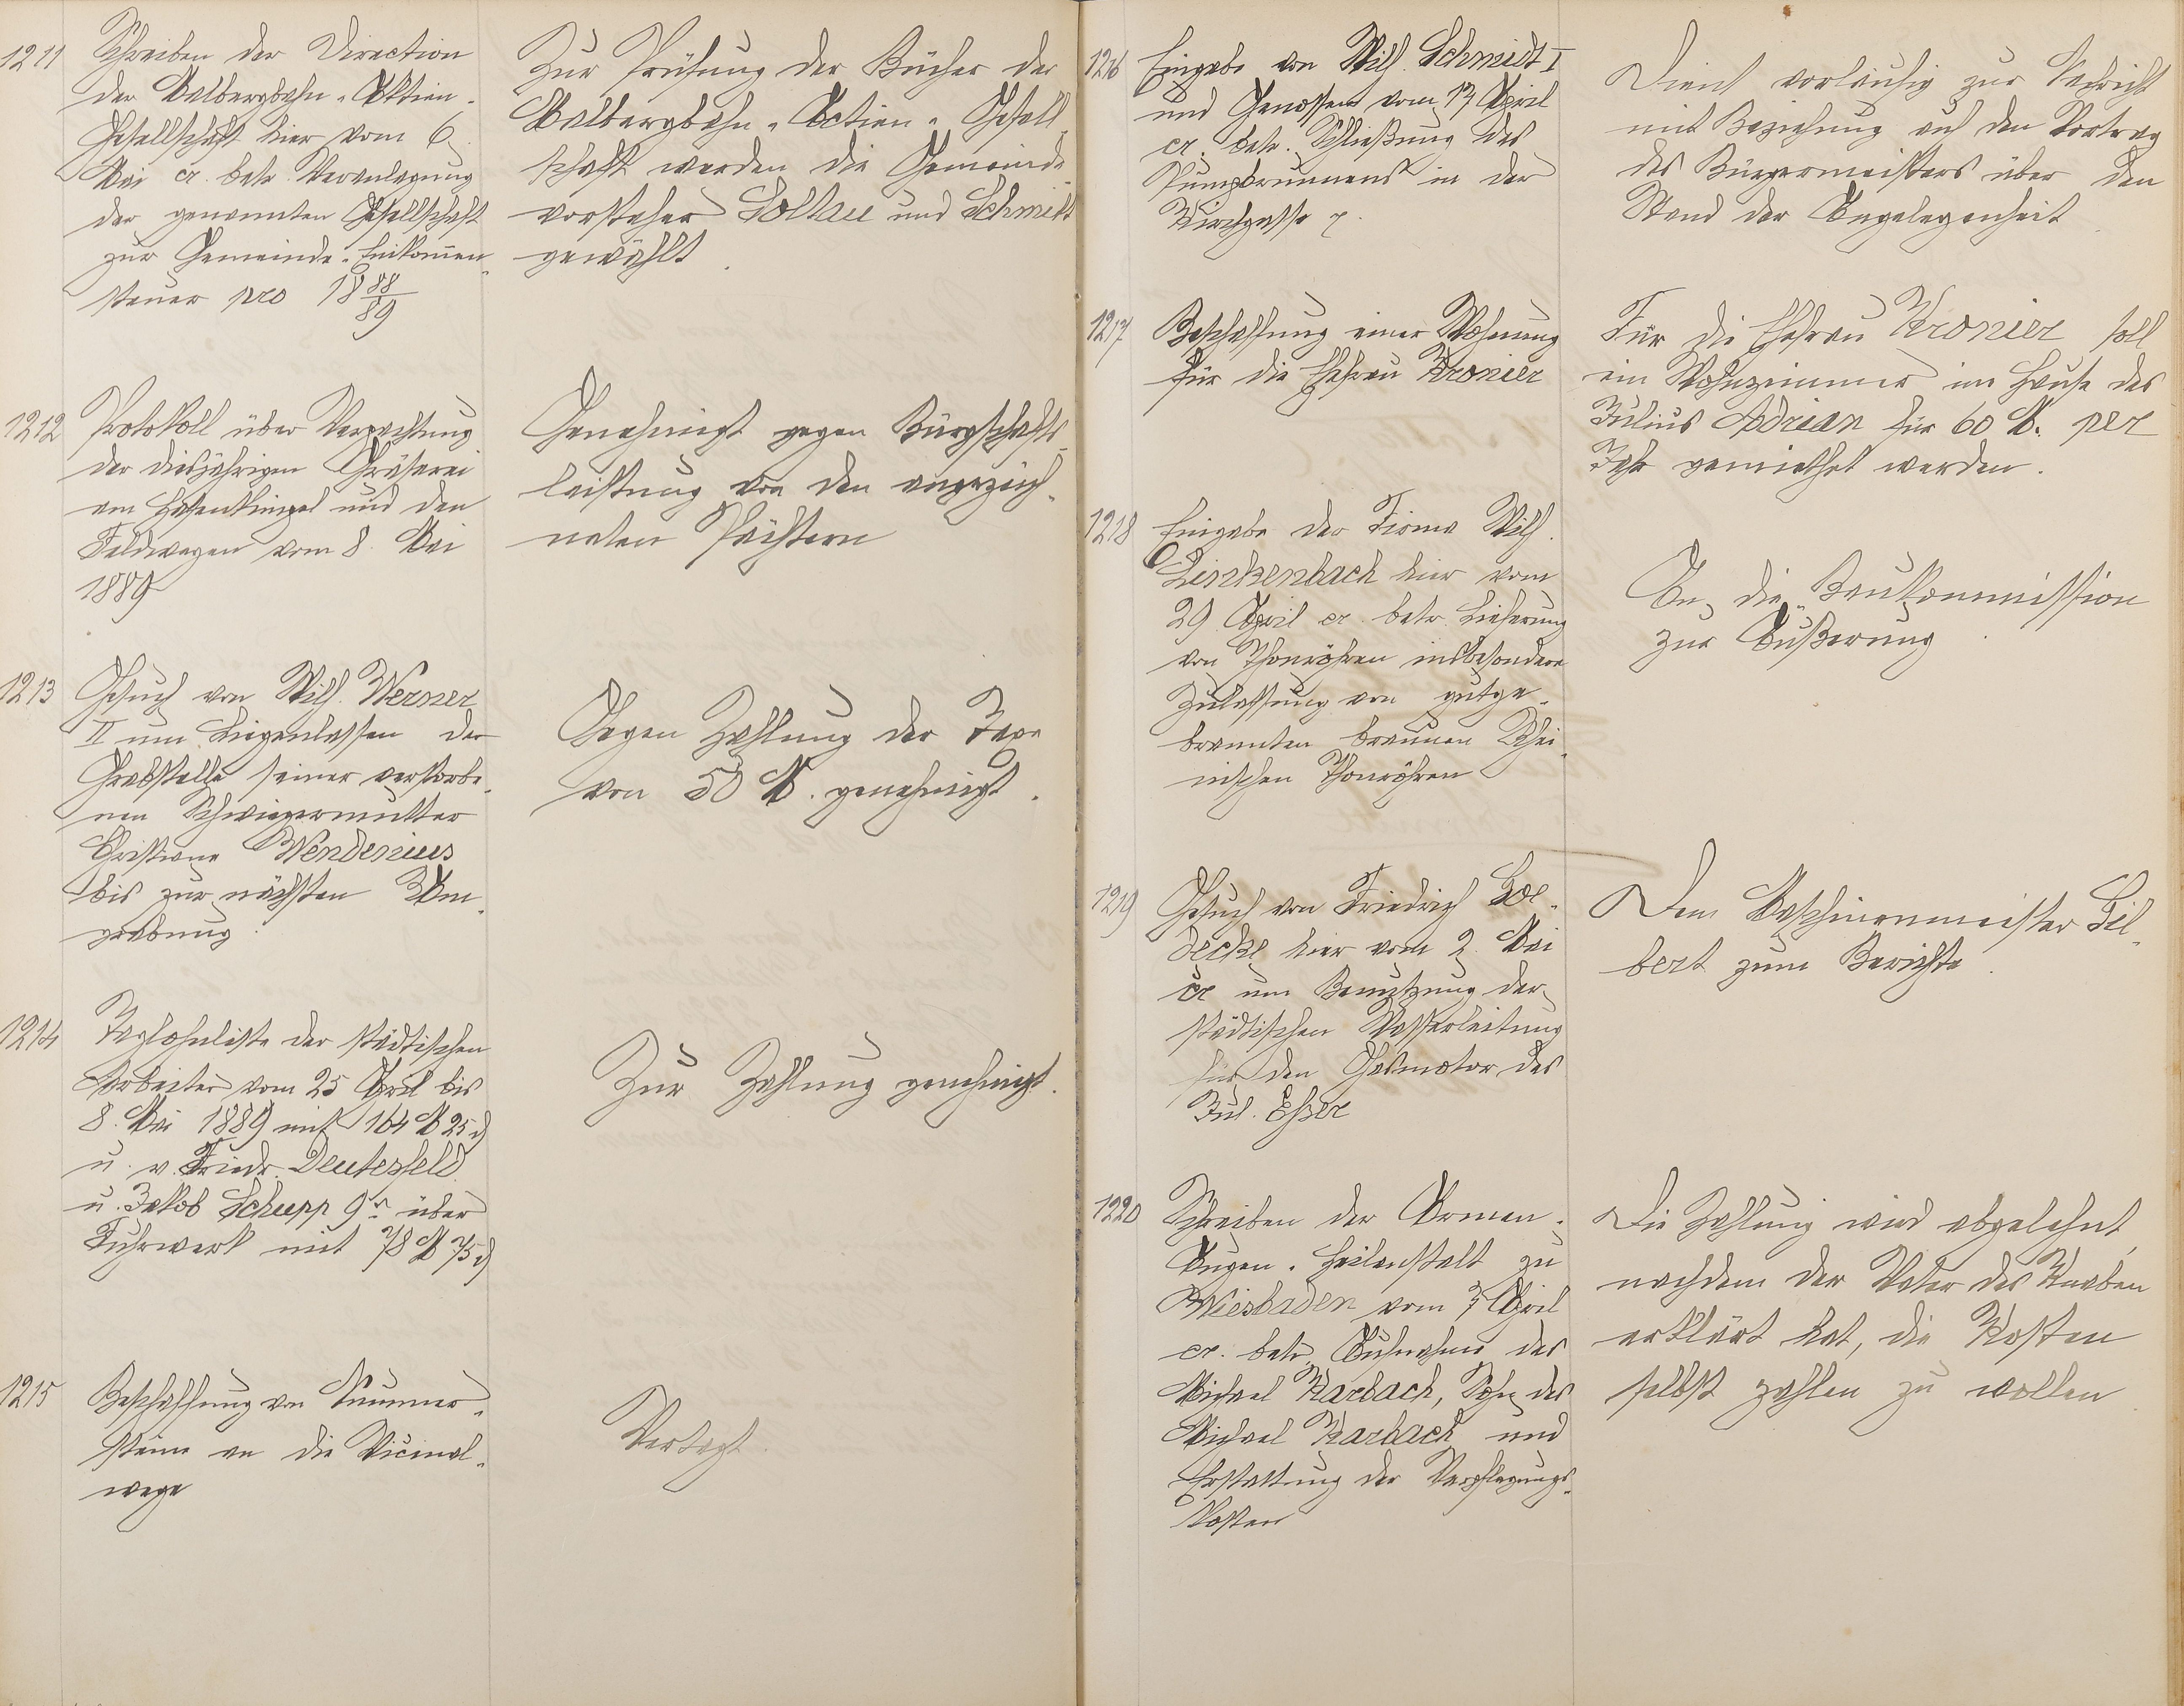 1211
Schreiben der Direction
der Malbergbahn-Aktien-
Gesellschaft hier vom 6.
Mai cr. betr. Veranlagung
der genannten Gesellschaft
zur Gemeinde-Einkommen-
steuer pro 18 88/89
Zur Prüfung der Bücher der
Malbergbahn-Actien-Gesell-
schaft werden die Gemeinde-
vorsteher Soltau und Schmitt
gewählt.
1212
Protokoll über Verpachtung
der diesjährigen Gräserei
am Hasenkümpel und den
Feldwegen vom 8. Mai
1889
Genehmigt gegen Bürgschafts-
leistung von den angezeich-
neten Pächtern
1213
Gesuch von Wilh. Werner
II um Liegenlassen der
Grabstelle seiner verstorbe-
nen Schwiegermutter
Christiane Wendenius
bis zur nächsten Um-
grabung.
Gegen Zahlung der Taxe
von 50 M. genehmigt.
1214
Taglohnliste der städtischen
Arbeiter vom 25 April bis
8. Mai 1889 mit 164 M 25 d
u. v. Friedr. Deutesfeld
u. Jakob Schupp 9r über
Fuhrwerk mit 78 M 75 d
Zur Zahlung genehmigt.
1215
Beschaffung von Nummer-
steine an die Vicinal-
wege
Vertagt.
1216
Eingabe von Wilh. Schmidt I
und Genossen vom 17 April
cr. betr. Schließung des
Pumpbrunnens in der
Kirchgasse
Dient vorläufig zur Nachricht
mit Beziehung auf den Vortrag
des Bürgermeisters über den
Stand der Angelegenheit.
1217
Beschaffung einer Wohnung
für die Ehefrau Kronier
Für die Ehefrau Kronier soll
ein Wohnzimmer im Hause des
Julius Adrian für 60 M. per
Jahr gemiethet werden.
1218
Eingabe der Firma Wilh.
Linkenbach hier vom
29 April cr. betr. Lieferung
von Thonröhren insbesondere
Zulassung von gutge-
brannten braunen Rhei-
nischen Thonröhren
An die Baukommission
zur Äußerung.
1219
Gesuch von Friedrich Goe-
decke hier vom 2. Mai
cr um Benutzung der
städtischen Wasserleitung
für den Gasmotor des
Jul. Esser
Dem Maschinenmeister Gil-
bert zum Berichte.
1220
Schreiben der Armen-
Augen-Heilanstalt zu
Wiesbaden vom 7 April
cr. betr. Aufnahme des
Michael Karbach, Sohn des
Michael Karbach und
Erstattung der Verpflegungs-
kosten
Die Zahlung wird abgelehnt,
nachdem der Vater des Knaben
erklärt hat, die Kosten
selbst zahlen zu wollen.